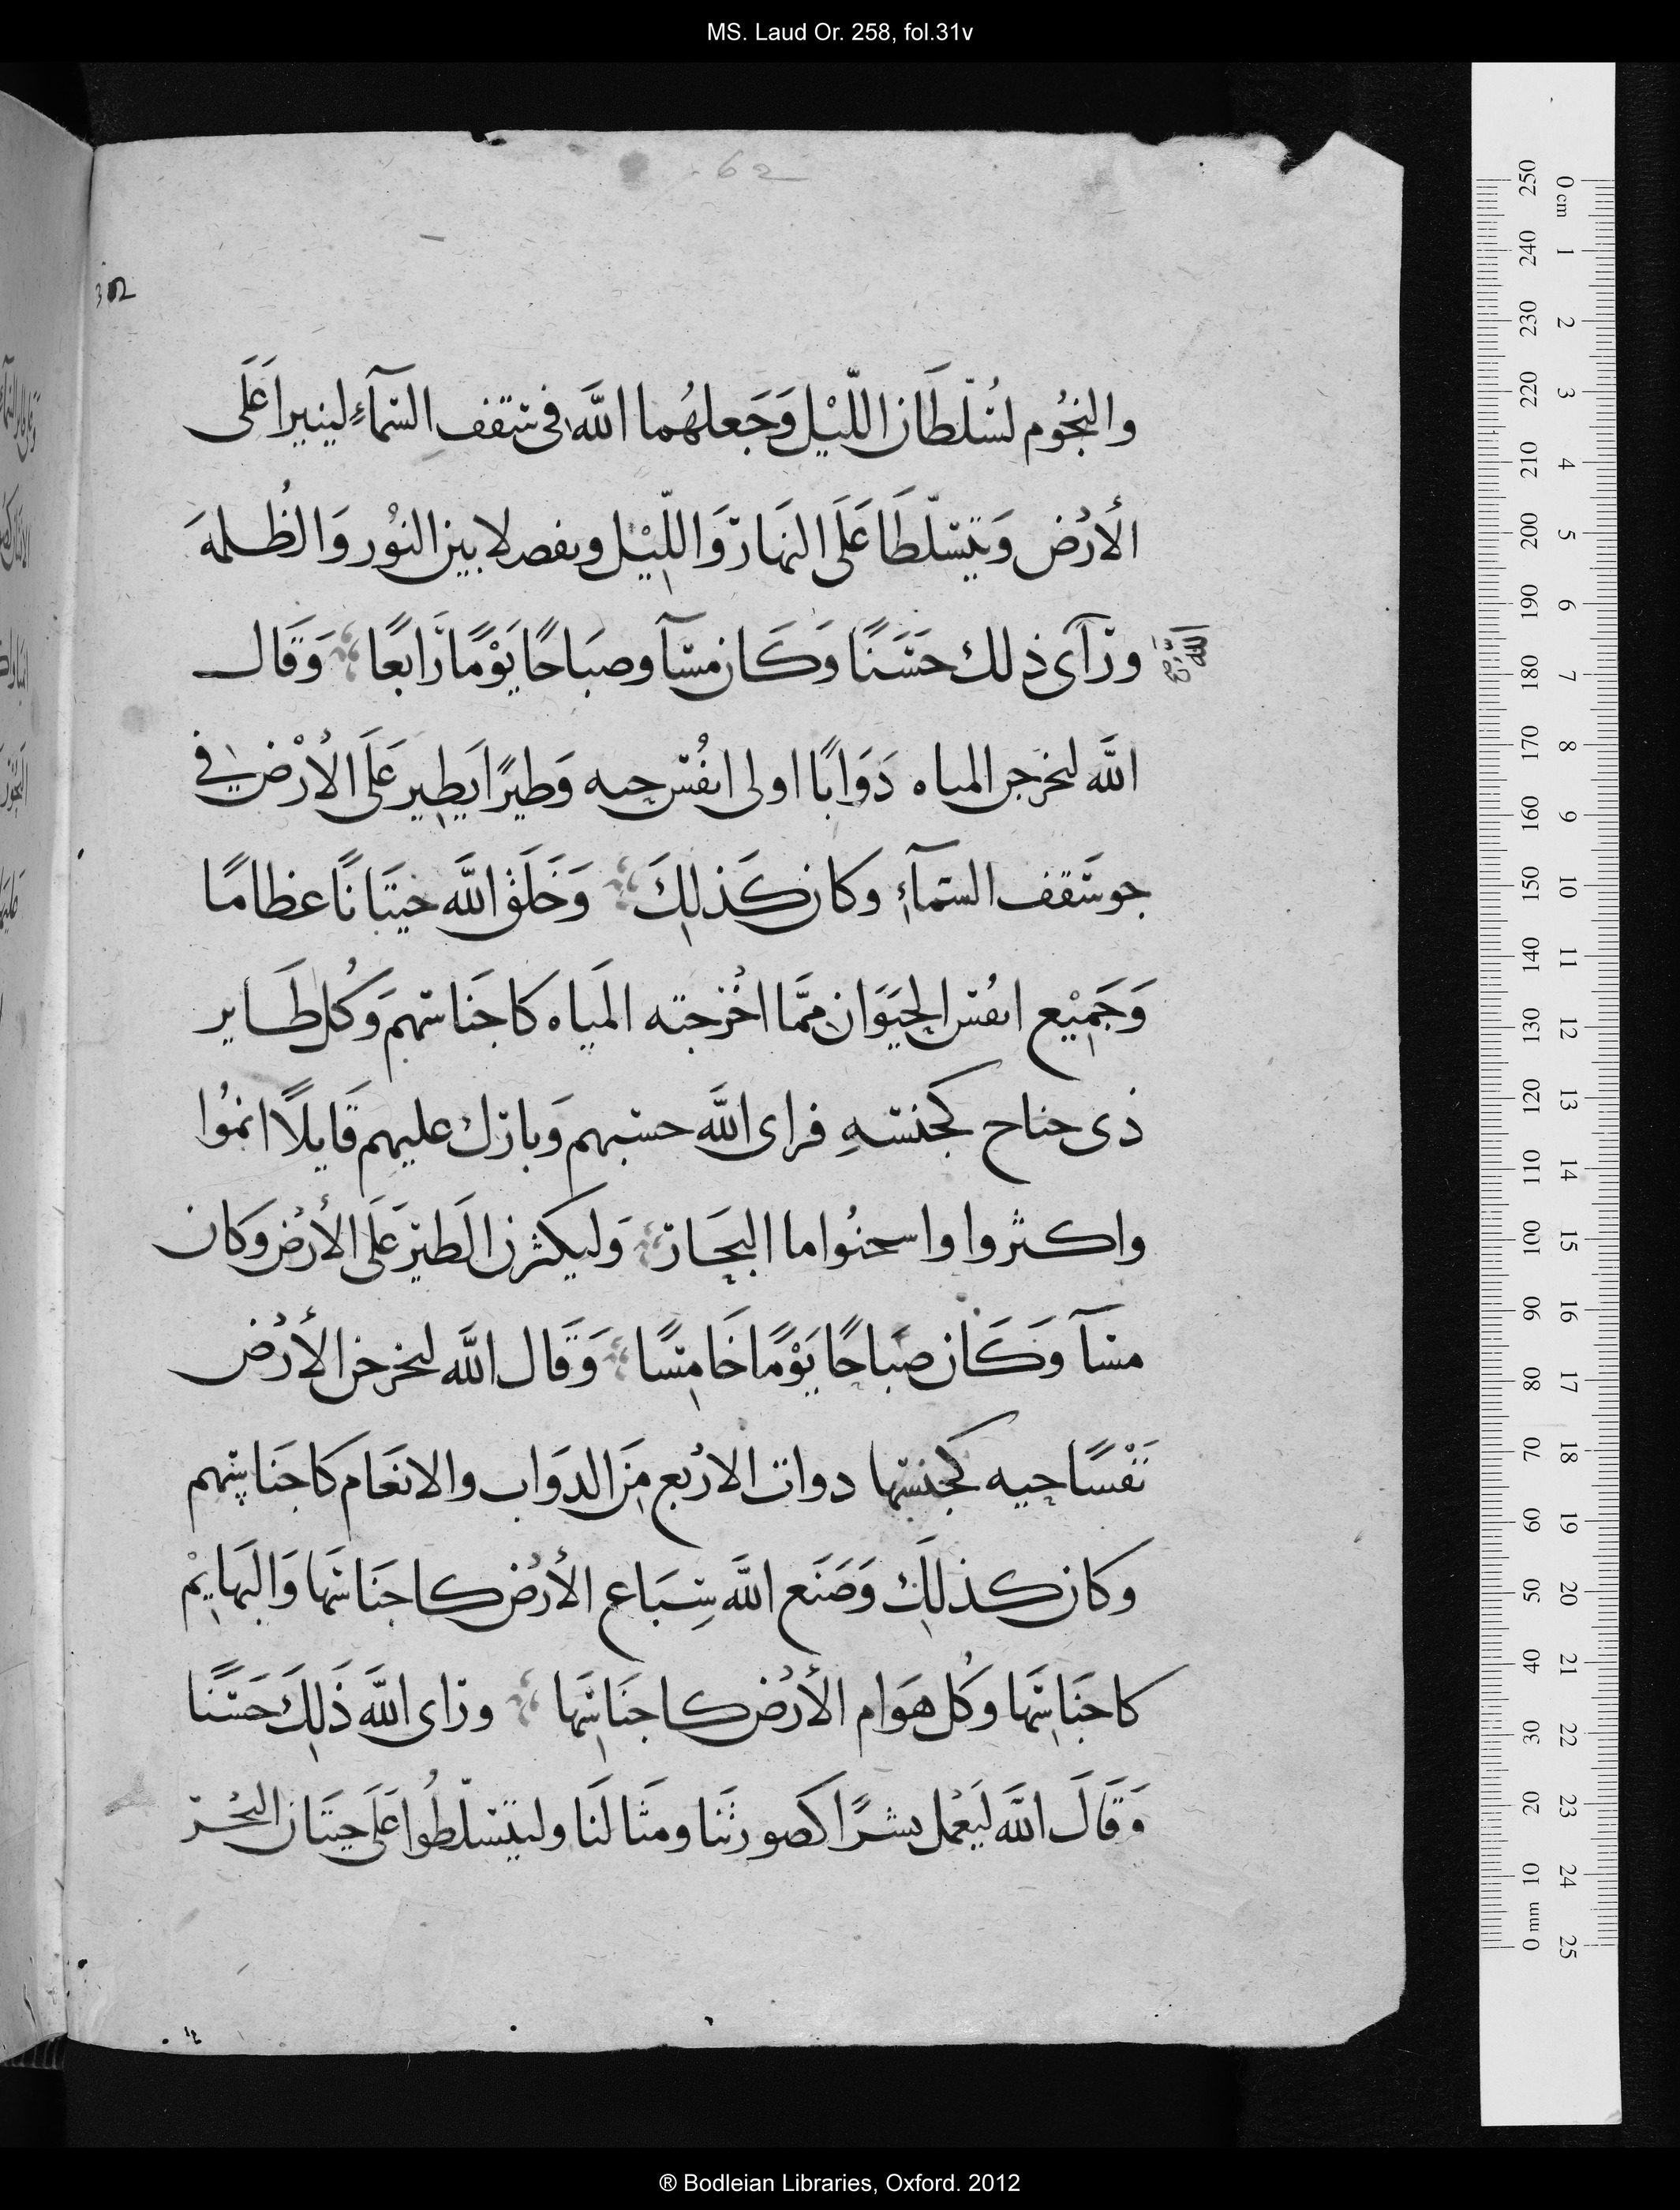 MS. Laud Or. 258, fol.31v
62
والنجُوم لسُلّطَان اللّيْل وَجَعلهُما اللَّه فى سَقف السّمآءِ لينيرا عَلَى
الأرْض وَيتسَلّطَا عَلَى النهَار وَاللّيْل ويفصلا بين النوُر وَالظُلمهَ
ورَآى ذلك حَسَنًا وَكَان مسَآ وصبَاحًا يَوْمًا رَابعًا وَقَال
اللَّه
صح
اللَّه لىخرجن المىاه دَوَابًا اولى انفُس حىه وَطيرًا يَطِير عَلَى الأرْض فى
جو سَقف السّمآءِ وكان كَذلِكَ وَخَلَق اللَّه حيتَانًا عظامًا
وَجَمِيْع انفُس الحِيَوَان ممَّا اخْرجته المَياه كاجنَاسهم وَكُل طَاير
ذى جناح كجنسهِ فراى اللَّه حسنهم وَبارك عليهم قَايلًا انموُا
واكثروا واسحنوُا ما البحَار وَليكثرن الطَير عَلَى الأرْض وكان
مسَآ وَكَان صَباحًا يَوْمًا خَامِسًا وَقَال اللَّه لىخرجن الأرْض
نَفْسًا حيه كجنسها دوات الارْبع مِنَ الدوَاب والانعَام كاجنَاسهم
وكان كذلِكَ وَصَنَع اللَّه سِبَاع الأرْض كاجنَاسهَا وَالبهَايِمْ
كاجنَاسِهَا وكُل هوَام الأرْض كاجنَاسِهَا وراى اللَّه ذَلِكَ حَسَنًا
وَقَالَ اللَّه ليَعْمل بشرًا كصورتنَا ومثَالنَا وليتسَلّطُوا عَلَى حيتَان البحْر
® Bodleian Libraries, Oxford. 2012